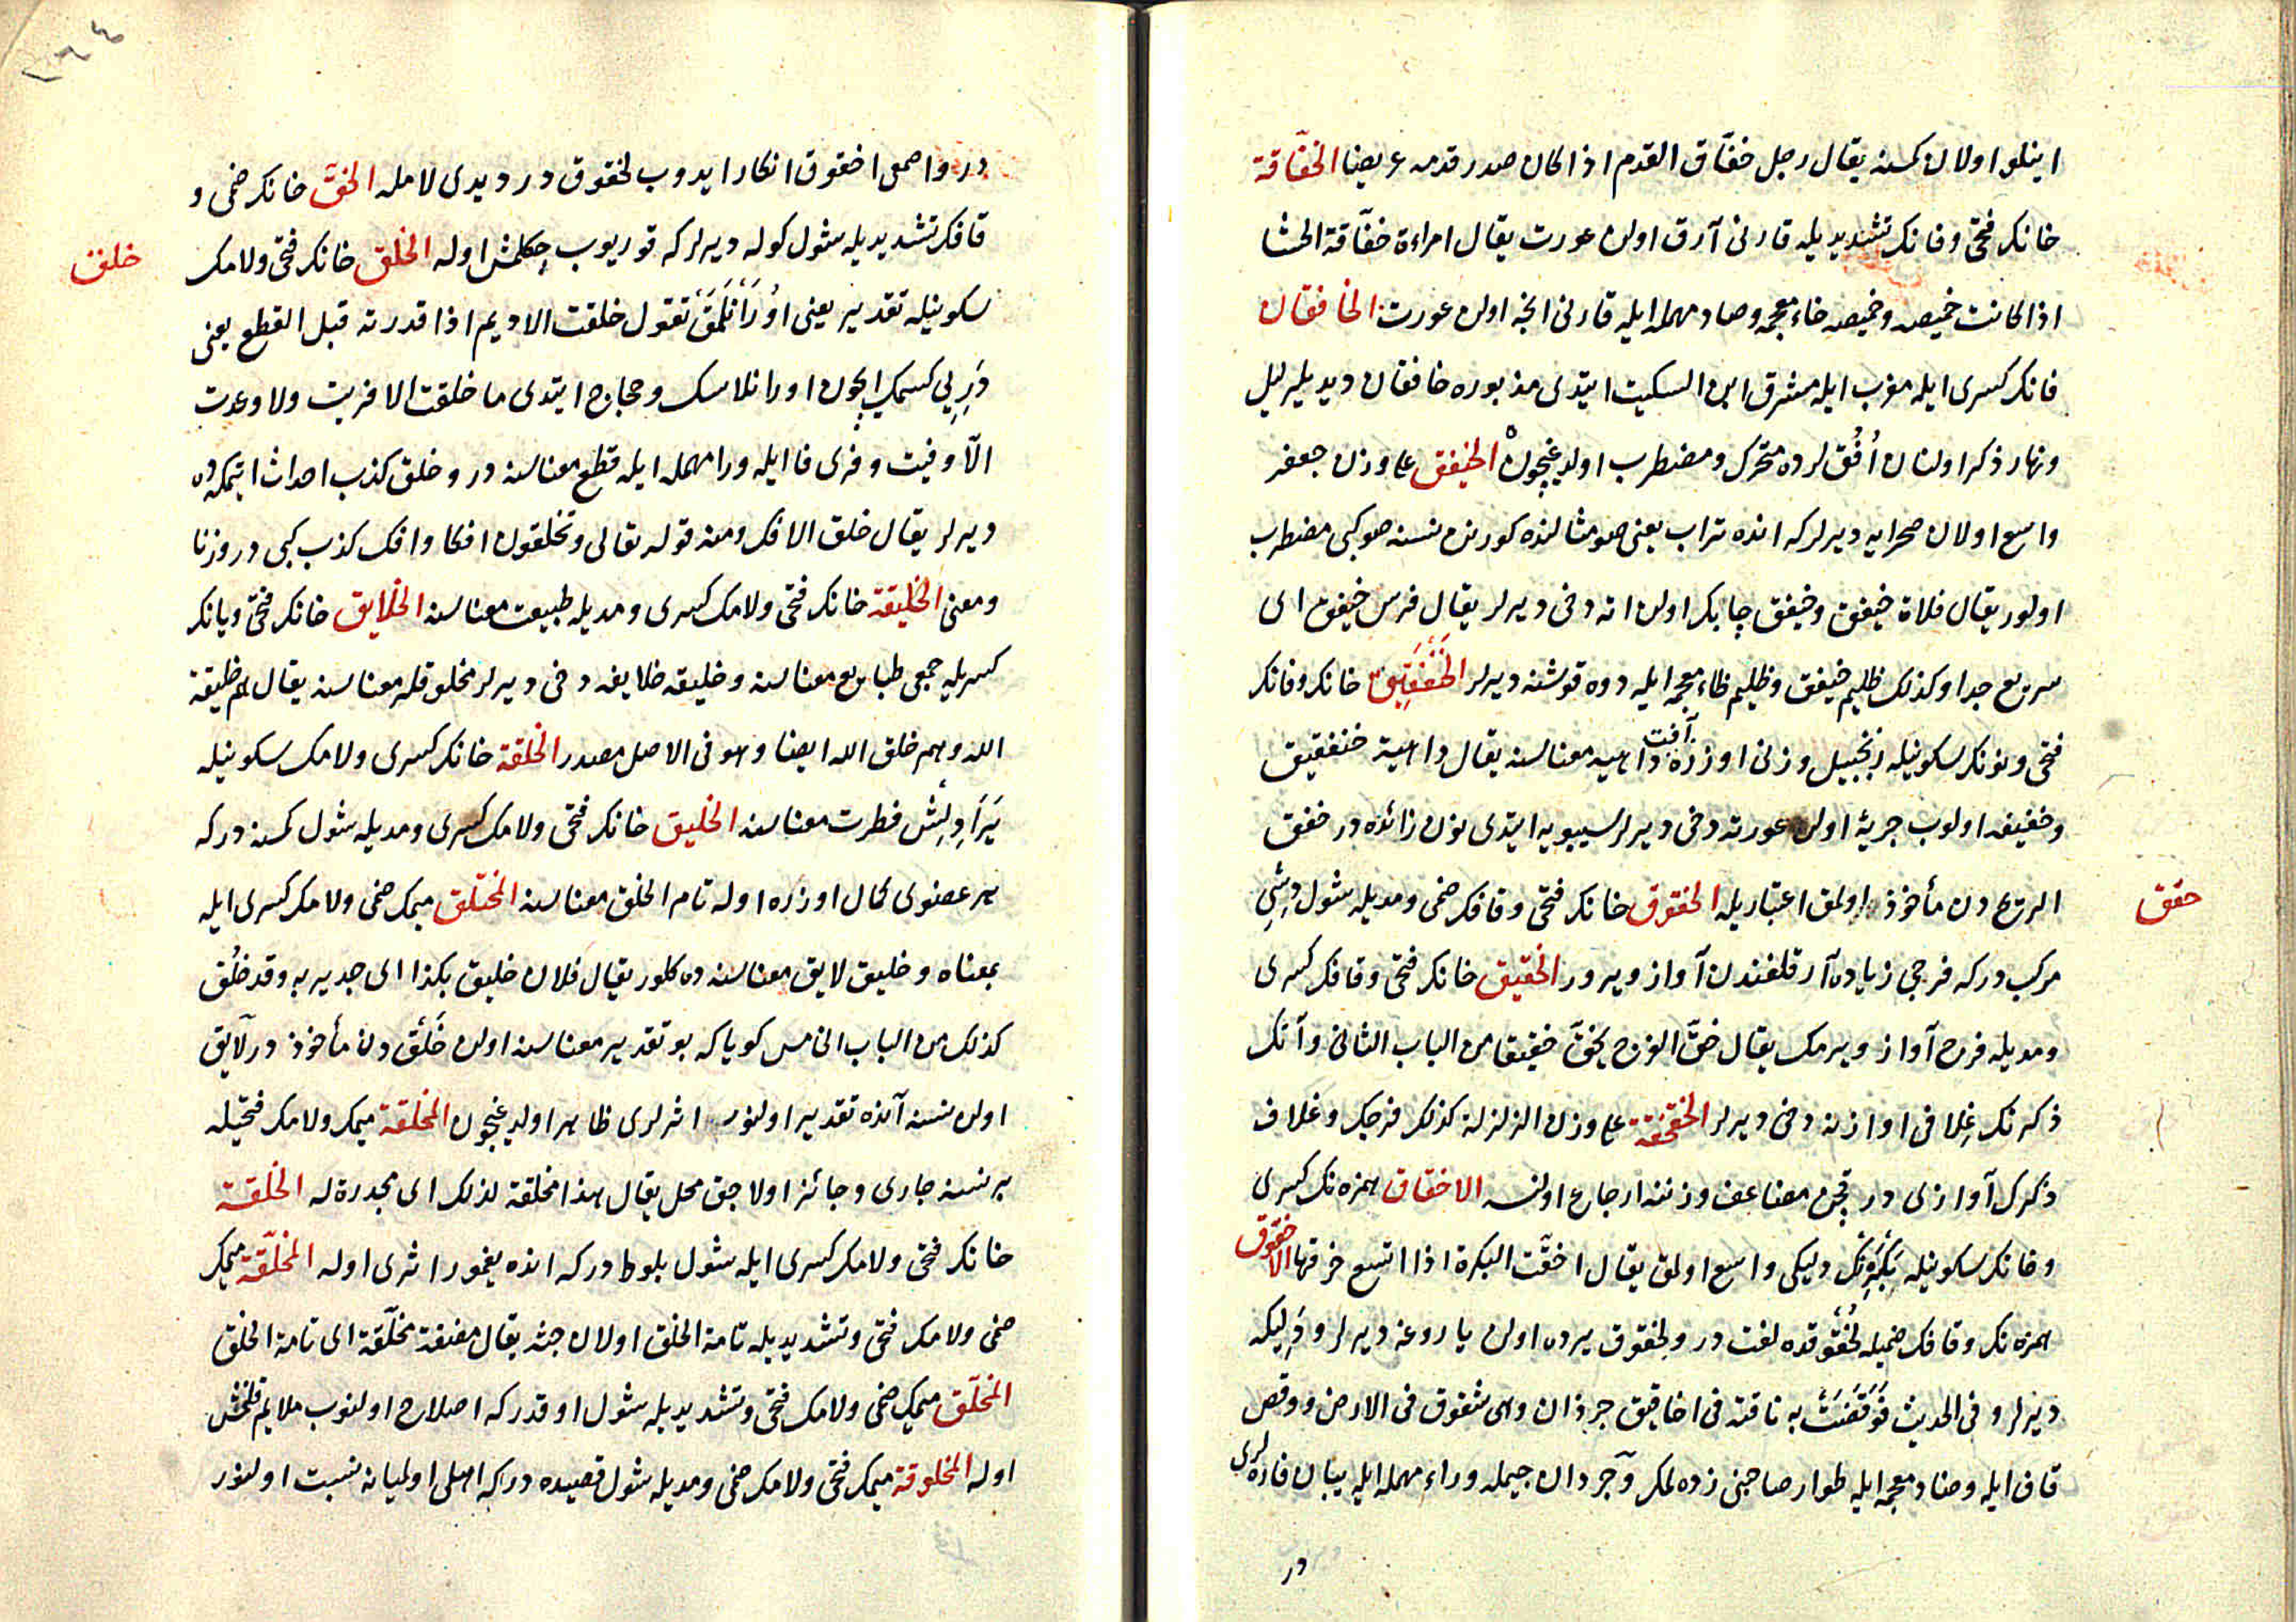 اينلو اولان كمسنه يقال رجل خفّاق القدم اذا كان صدر قدمه عريضا الخفّاقة
خانك فتحى و فانك تشديديله قارنى آرق اولن عورت يقال امراءة خفّاقة الحشا
اذا كانت خميصه و خميصه خاء معجمه و صاد مهمله ايله قارنى انجه اولن عورت الخافقان
فانك كسرى ايله مغرب ايله مشرق ابن السكيت ايتدى مذبوره خافقان ديديلر ليل
و نهار ذكر اولنان اُفُق لرده متحرك و مضطرب اولديغيچون الخيفق على وزن جعفر
واسع اولان صحرايه ديرلر كه انده تراب يعنى صو مثالنده كورنن نسنه صو كبى مضطرب
اولور يقال فلاة خيفق و خيفق چابك اولن اته دخى ديرلر يقال فرس خيفق اى
سريع جدا و كذلك ظليم خيفق و ظليم ظاء معجمه ايله دوه قوشنه ديرلر الخَنْفَقِيق خانك و فانك
فتحى و نونك سكونيله زنجبيل وزنى اوزره داهيه معناسنه يقال داهية خنفقيق
آفت
و خفيفه اولوب جريئة اولن عورته دخى ديرلر سيبويه ايتدى نون زائده در خفق
الريح دن مأخوذ اولمق اعتباريله الخقوق خانك فتحى و قافك ضمى و مديله شول ديشى
خقق
مركب در كه فرجى زياده آرقلغندن آواز ويرور الخقيق خانك فتحى و قافك كسرى
و مديله فرج آواز ويرمك يقال خقّ الفرج يخقّ خقيقا من الباب الثانى و آنك
ذكرنك غلافى اوازنه دخى ديرلر الخقخقة على وزن الزلزلة كذلك فرجك و غلاف
ذكرك آوازى در قچن مضاعف وزننه ارجاع اولنسه الاخقاق همزه نك كسرى
و خانك سكونيله بَكَرَه نك دليكى واسع اولمق يقال اخقّت البكرة اذا اتسع خرقها الاخقوق
همزه نك و قافك ضميله لُخْقُوقده لغت در و لخقوق يرده اولن ياروغه ديرلر و دَليكه
ديرلر و فى الحديث فَوَقَصَتْ به ناقته فى اخاقيق جرذان وهى شقوق فى الارض و وقص
قاف ايله و ضاد معجمه ايله طوار صاحبنى زده لمك و جرذان جيمله و راء مهمله ايله يبان فاره لرى
در
در و اصمعى اخقوق انكار ايدوب لخقوق در ديدى لامله الخقّ خانك ضمى و
قافك تشديديله شول كوله ديرلر كه قوريوب چكلمش اوله الخلق خانك فتحى و لامك
خلق
سكونيله تقدير يعنى اُورَانْلَمَقْ تقول خلقت الاديم اذا قدرته قبل القطع يعنى
دَرِيى كسمك ايچون اورانلاسك و حجاج ايتدى ما خلقت الا فريت و لا وعدت
الّا وفيت و فرى فا ايله و را مهمله ايله قطع معناسنه در و خلق كذب احداث ايتمكه ده
ديرلر يقال خلق الافك و منه قوله تعالى و تخلقون افكا و افك كذب كبى در وزنا
و معنى الخليقة خانك فتحى و لامك كسرى و مديله طبيعت معناسنه الخلايق خانك فتحى و يانك
كسريله جمعى طبايع معناسنه و خليقه خلايقه دخى ديرلر مخلوقلر معناسنه يقال هم خليقة
الله و هم خلق الله ايضا و هو فى الاصل مصدر الخلقة خانك كسرى و لامك سكونيله
يَرَادِلِشْ فطرت معناسنه الخليق خانك فتحى و لامك كسرى و مديله شول كمسنه در كه
هر عضوى كمال اوزره اوله تام الخلق معناسنه المختلق ميمك ضمى و لامك كسرى ايله
بمعناه و خليق لايق معناسنه ده كلور يقال فلان خليق بكذا اى جدير به و قد خلُق
كذلك من الباب الخامس كويا كه بو تقدير معناسنه اولن خَلْق دن مأخوذ در لايق
اولن نسنه آنده تقدير اولنور اثرلرى ظاهر اولديغيچون المخلقة ميمك و لامك فتحيله
بر نسنه جارى و جائز اولاجق محل يقال هذا مخلقة لذلك اى مجدرة له الخلقة
خانك فتحى و لامك كسرى ايله شول بلوط در كه انده يغمور اثرى اوله المخلّقة ميمك
ضمى و لامك فتحى و تشديديله تامة الخلق اولان جثه يقال مضغة مخلّقة اى تامة الخلق
المخلّق ميمك ضمى و لامك فتحى و تشديديله شول اوقدر كه اصلاح اولنوب ملايم قلنمش
اوله المخلوقة ميمك فتحى و لامك ضمى و مديله شول قصيده در كه اهلى اولميانه نسبت اولنور